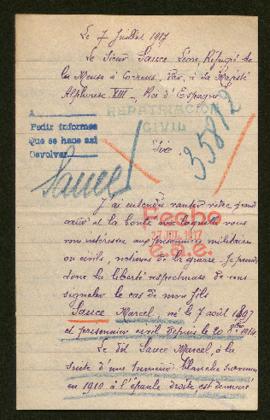 Le 7 Juillet 1917
Le Sieur Sauce Leon, Refugié de
la Meuse à Correns, Var, à Sa Majesté
Alphonse XIII, Roi d'Espagne
REPATRIACION
CIVIL
A
Pedir informes
Que se hace así
Devolver
35812
Sire.
Sauce
J'ai entendu vanter votre grand
cœur et la bonté avec laquelle vous
vous intéressez aux prisonniers militaires
ou civils, victimes de la guerre. Je prends
donc la liberté respectueuse de vous
signaler le cas de mon fils
Fecho
17 JUL 1917
Sauce Marcel, né le 7 août 1897
et prisonnier civil depuis le 20 1914
Le dit Sauce Marcel, à la
suite d'une tumeur blanche survenue
en 1910 à l'épaule droite est demeuré